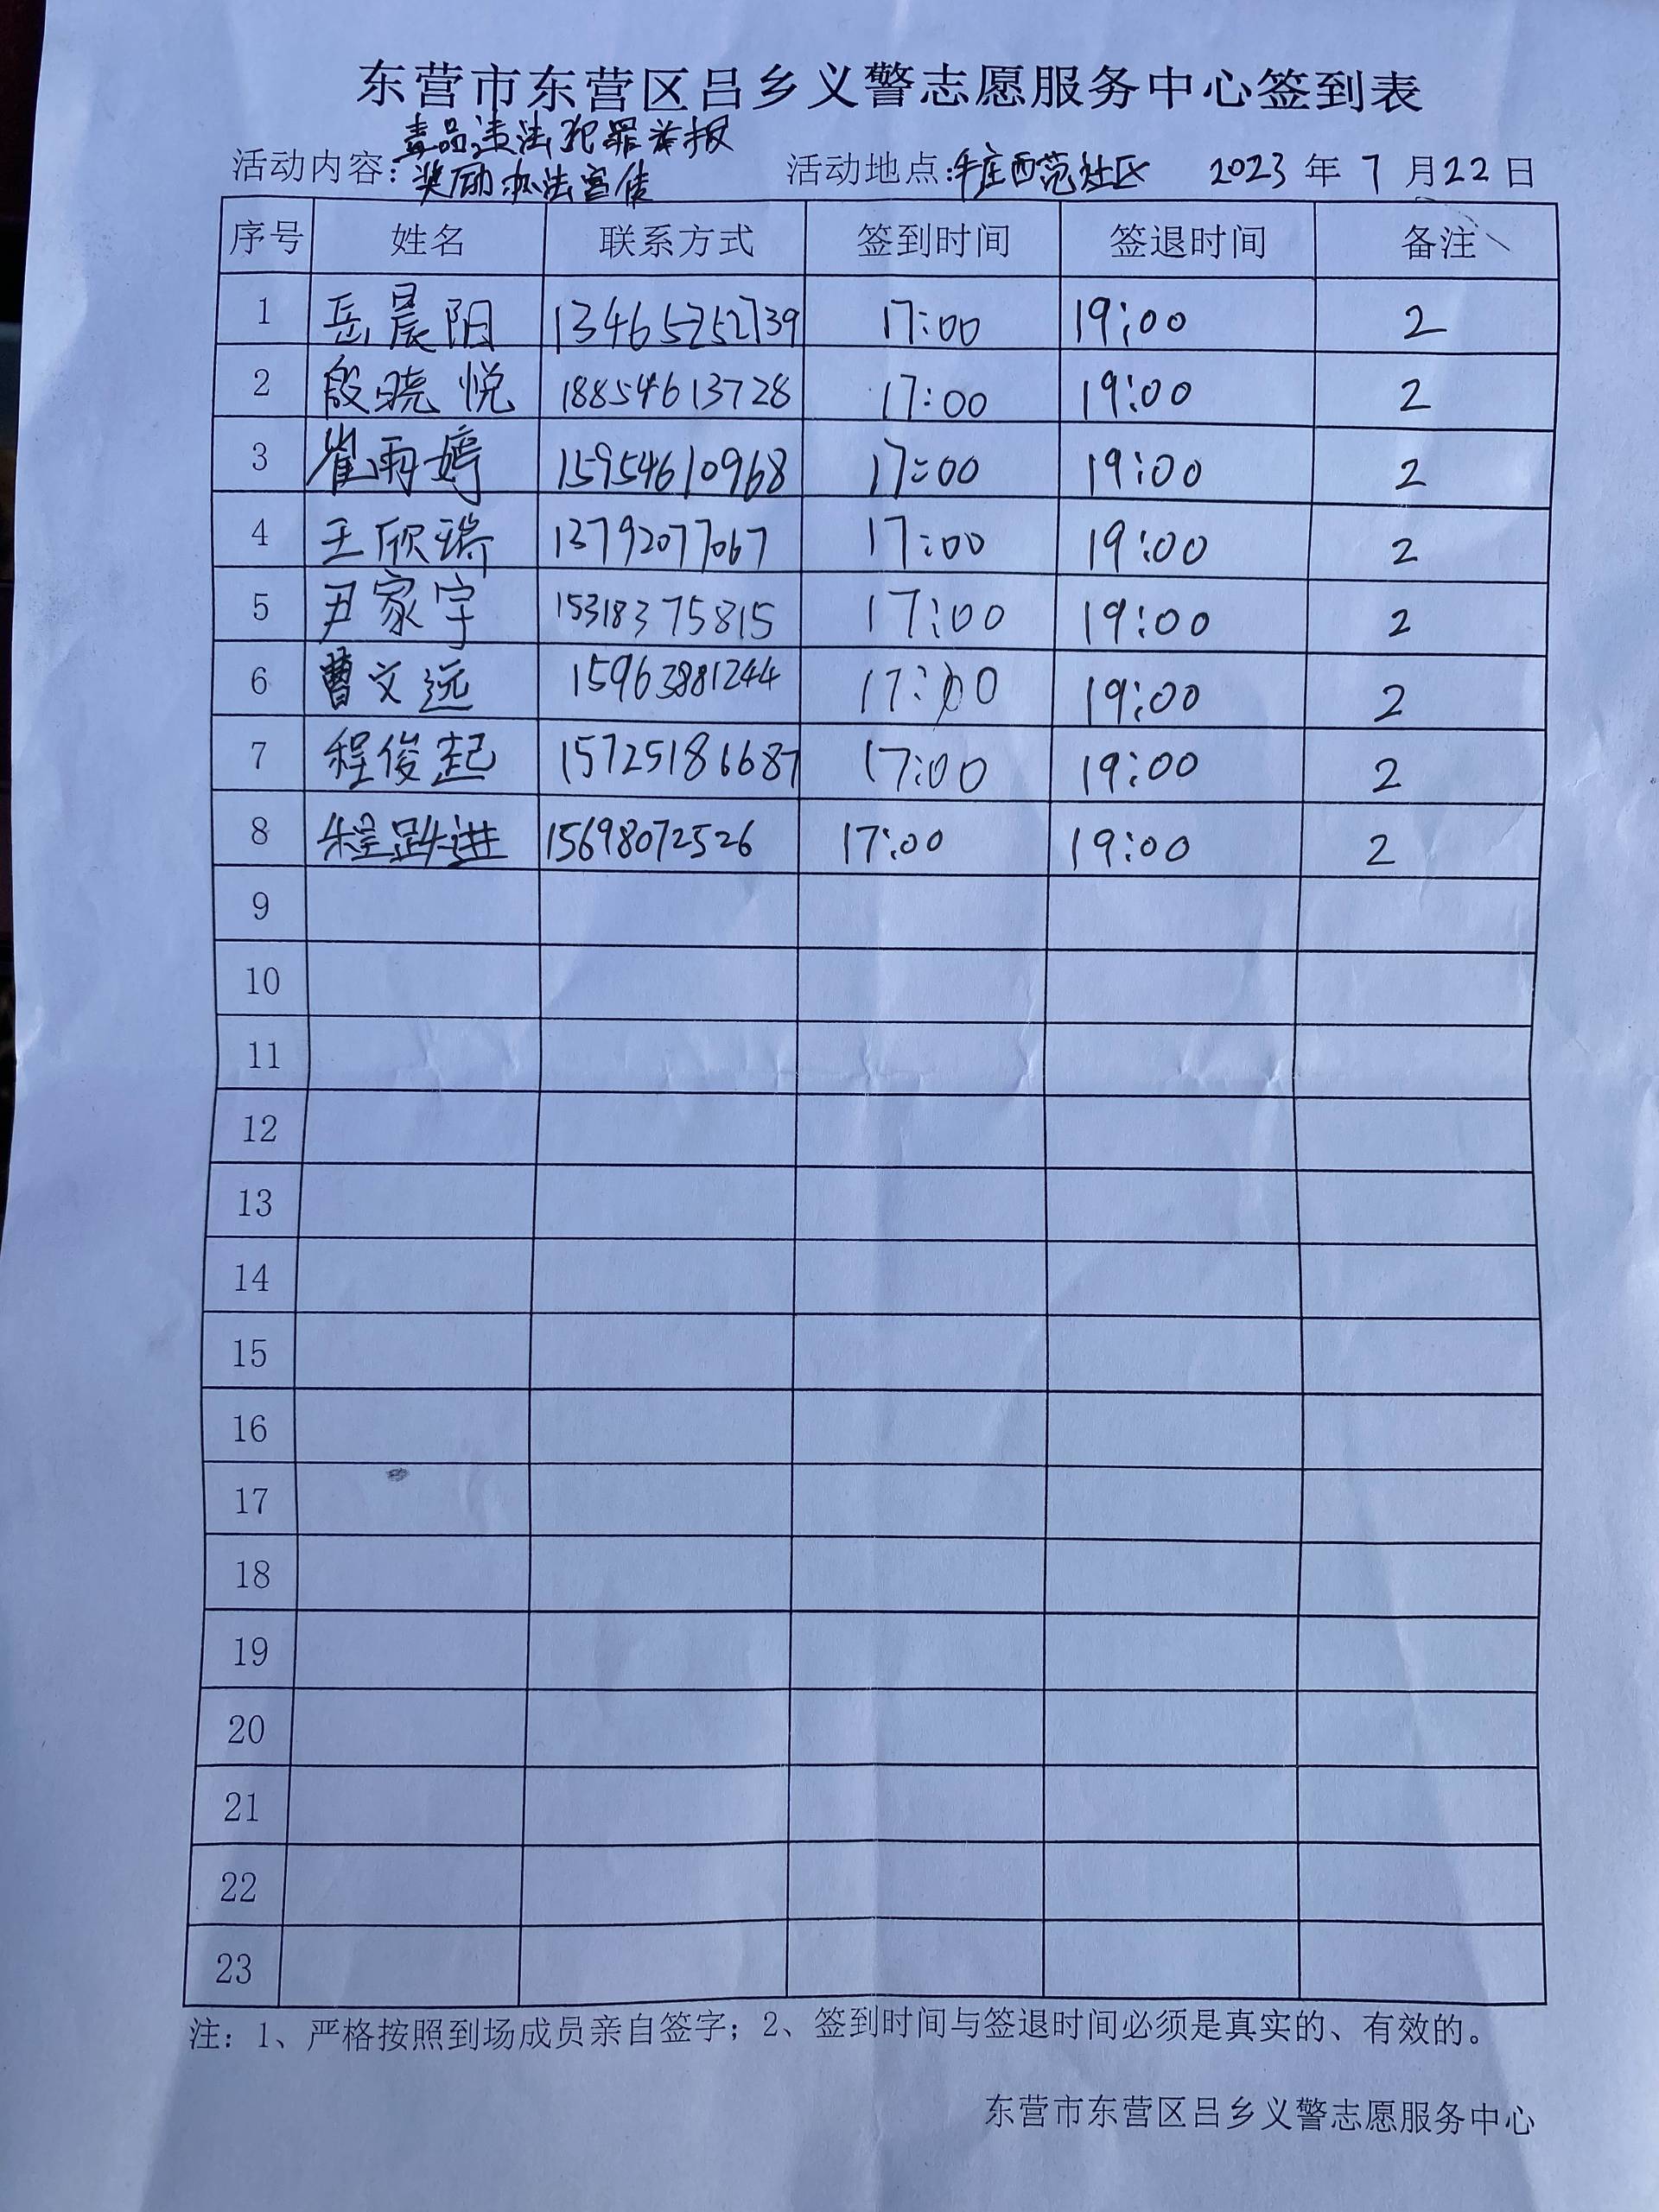 东营市东营区吕乡义警志愿服务中心签到表
毒品违法犯罪举报
活动内容：奖励办法宣传 活动地点：牛庄西范社区 2023 年 7 月 22 日
序号 姓名 联系方式 签到时间 签退时间 备注
1 岳晨阳 13465252739 17:00 19:00 2
2 殷晓悦 18854613728 17:00 19:00 2
3 崔雨婷 15954610968 17:00 19:00 2
4 王欣瑞 13792077067 17:00 19:00 2
5 尹家宇 15318375815 17:00 19:00 2
6 曹文远 15963881244 17:00 19:00 2
7 程俊起 15725186687 17:00 19:00 2
8 程跃进 15698072526 17:00 19:00 2
9
10
11
12
13
14
15
16
17
18
19
20
21
22
23
注：1、严格按照到场成员亲自签字；2、签到时间与签退时间必须是真实的、有效的。
东营市东营区吕乡义警志愿服务中心